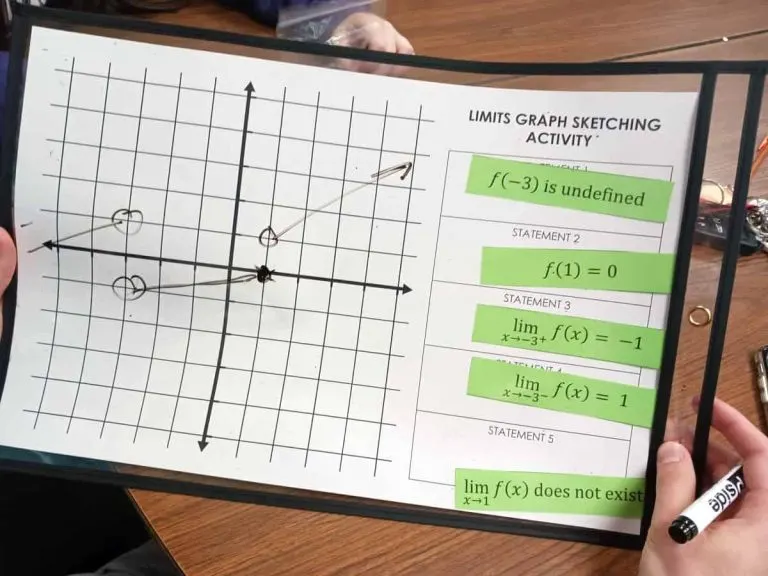 LIMITS GRAPH SKETCHING
ACTIVITY
f(−3) is undefined
STATEMENT 2
f(1) = 0
STATEMENT 3
lim x→−3⁺ f(x) = −1
STATEMENT 4
lim x→−3⁻ f(x) = 1
STATEMENT 5
lim x→1 f(x) does not exist